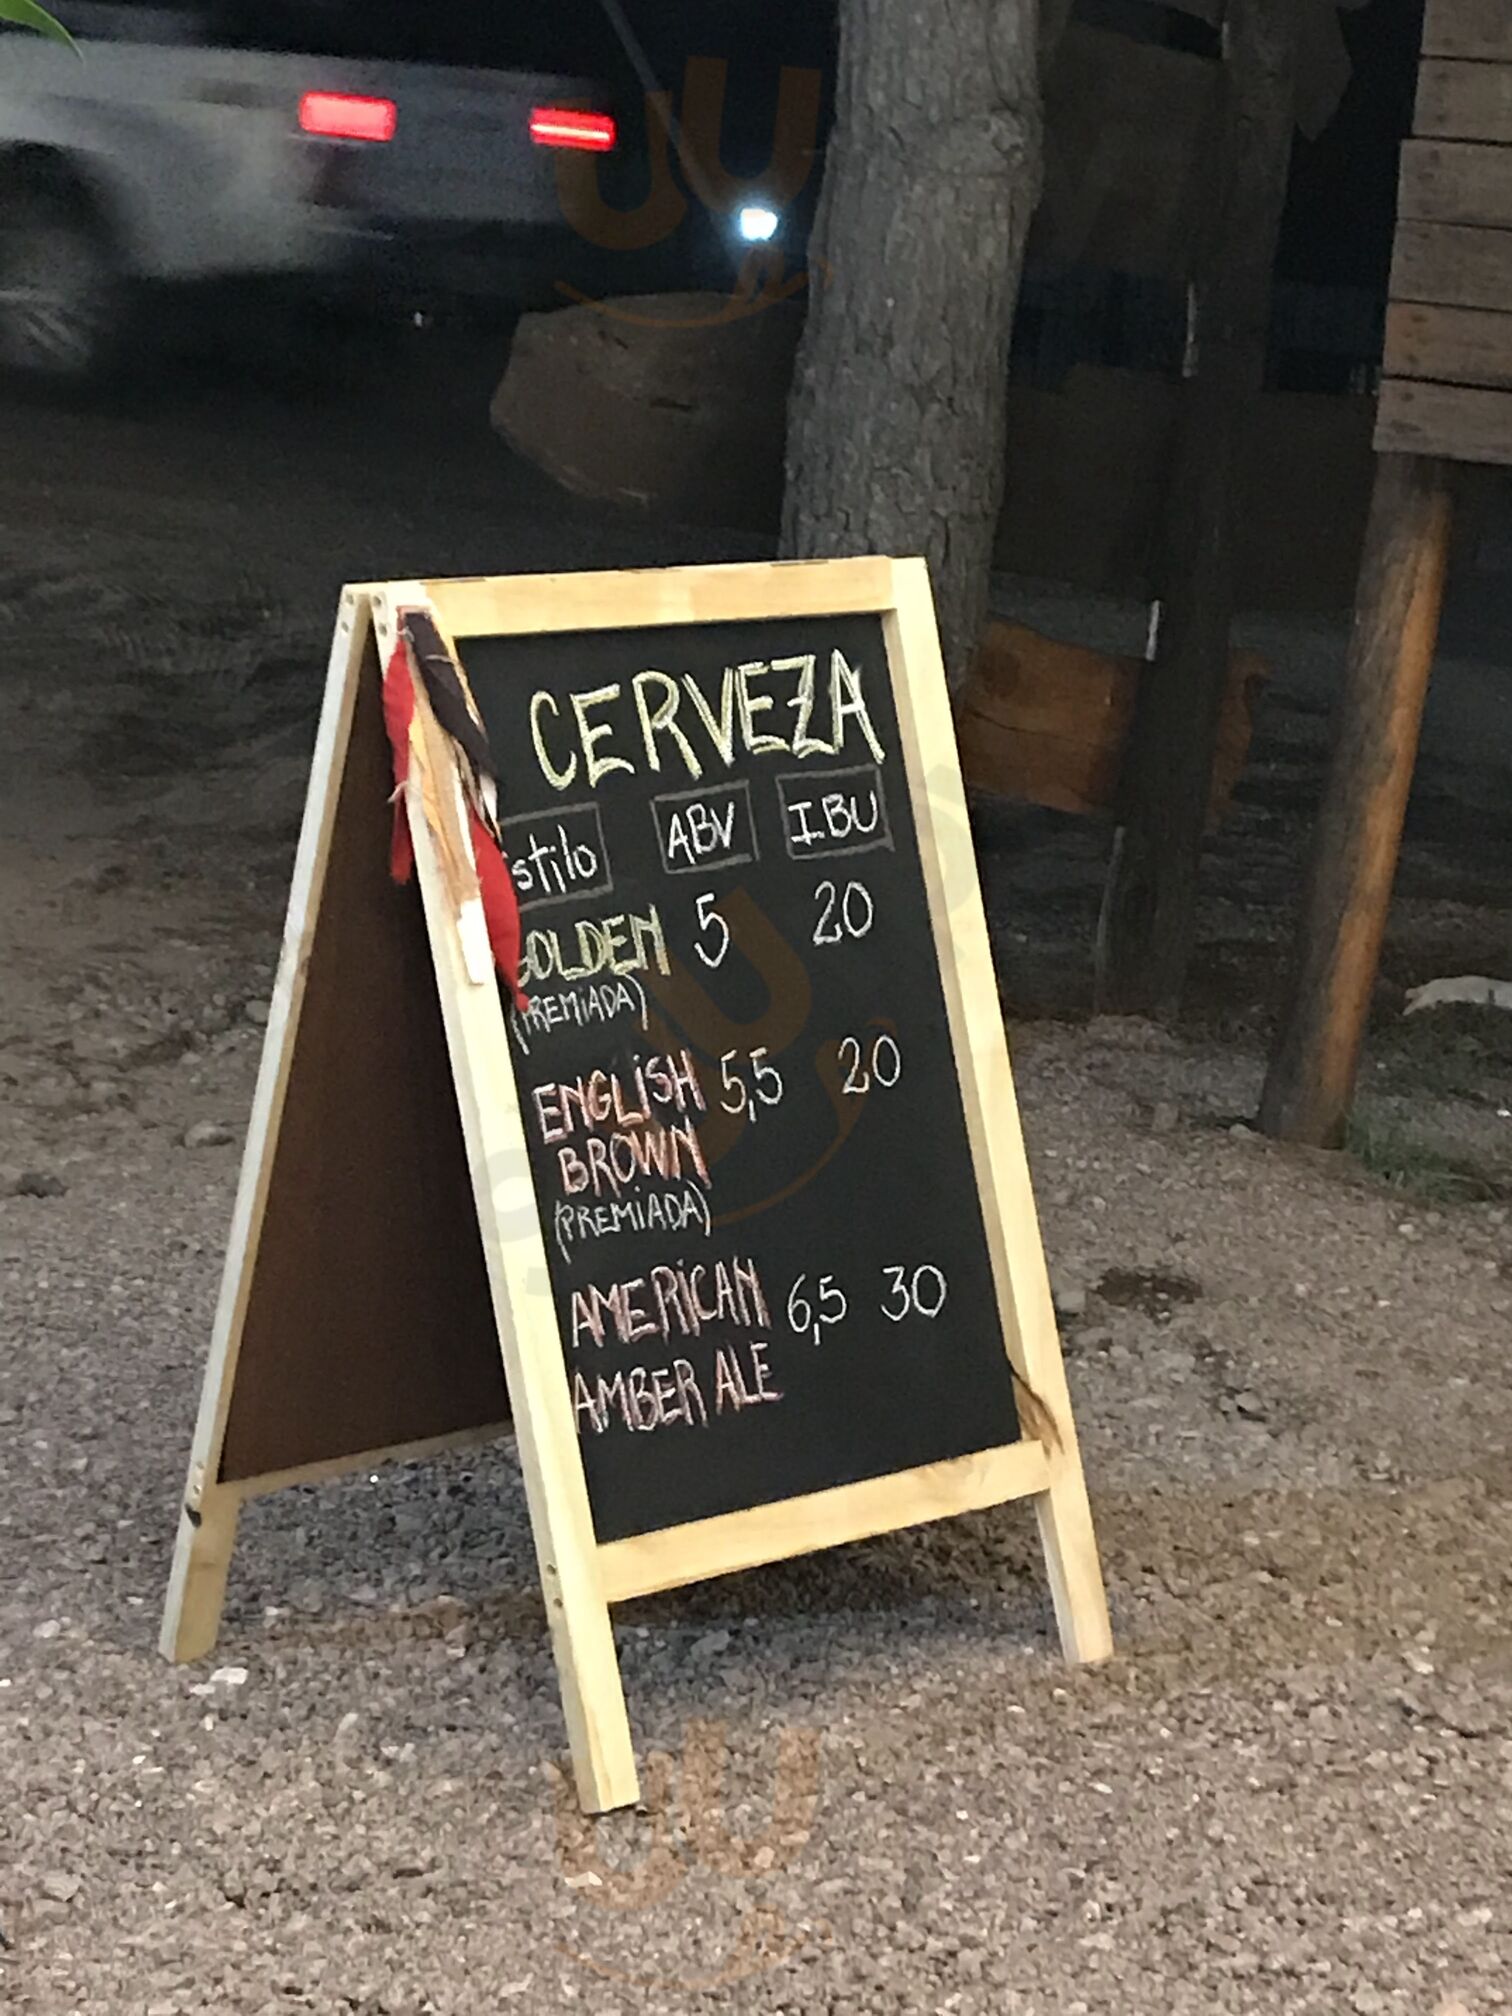 CERVEZA
Estilo ABV IBU
GOLDEN 5 20
(PREMiADA)
ENGLiSH 5,5 20
BROWN
(PREMiADA)
AMERiCAN 6,5 30
AMBER ALE